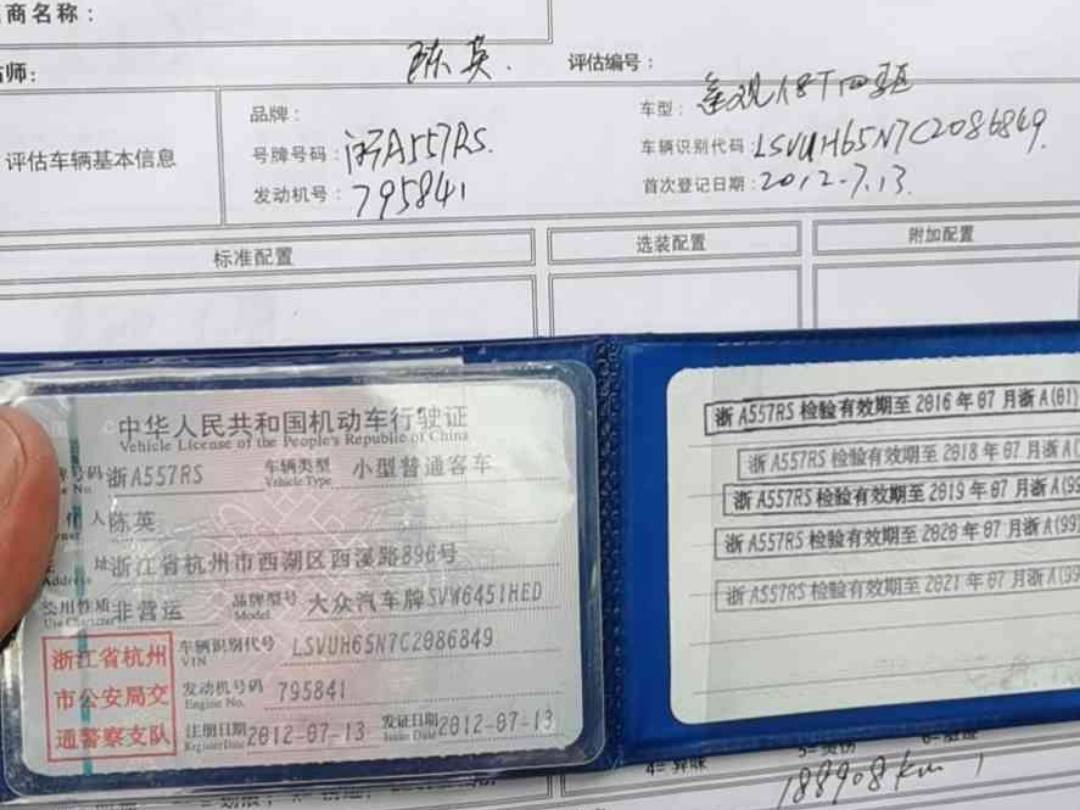 商名称：
师: 陈英. 评估编号：
评估车辆基本信息
品牌： 车型： 途观1.8T四驱
号牌号码：浙A557RS. 车辆识别代码：LSVUH65N7C2086849.
发动机号：795841 首次登记日期：2012-7.13.
标准配置 选装配置 附加配置
中华人民共和国机动车行驶证
Vehicle License of the People's Republic of China
号码 浙A557RS 车辆类型 小型普通客车
Vehicle Type
人 陈英
址 浙江省杭州市西湖区西溪路896号
Address
使用性质 非营运 品牌型号 大众汽车牌SVW6451HED
Use Character Model
浙江省杭州市公安局交通警察支队
车辆识别代号 LSVUH65N7C2086849
VIN
发动机号码 795841
Engine No.
注册日期 2012-07-13 发证日期 2012-07-13
Register Date Issue Date
浙A557RS 检验有效期至 2016 年 07 月浙A(01)
浙A557RS 检验有效期至 2018 年 07 月浙A(
浙A557RS 检验有效期至 2019 年 07 月浙A(99
浙A557RS 检验有效期至 2020 年 07 月浙A(99)
浙A557RS 检验有效期至 2021 年 07 月浙A(99
188908km